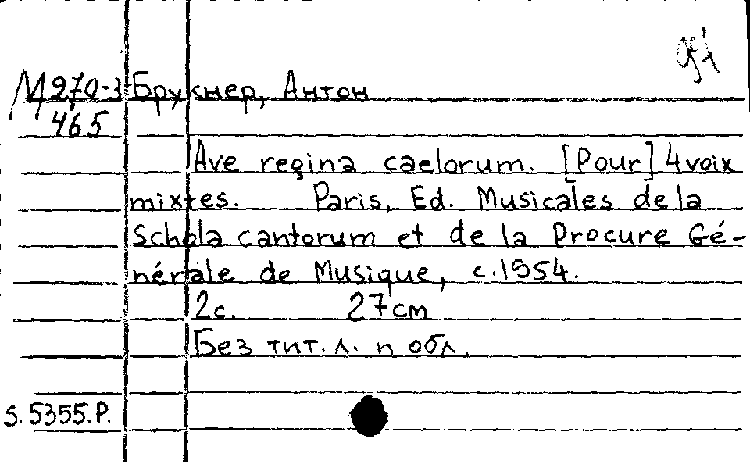 М270-3 Брукнер, Антон
465
Ave regina caelorum. [Pour] 4 voix
mixtes. Paris, Ed. Musicales de la
Schola cantorum et de la Procure Gé-
nérale de Musique, c.1954.
2с. 27 cm
Без тит. л. и обл.
S. 5355.P.